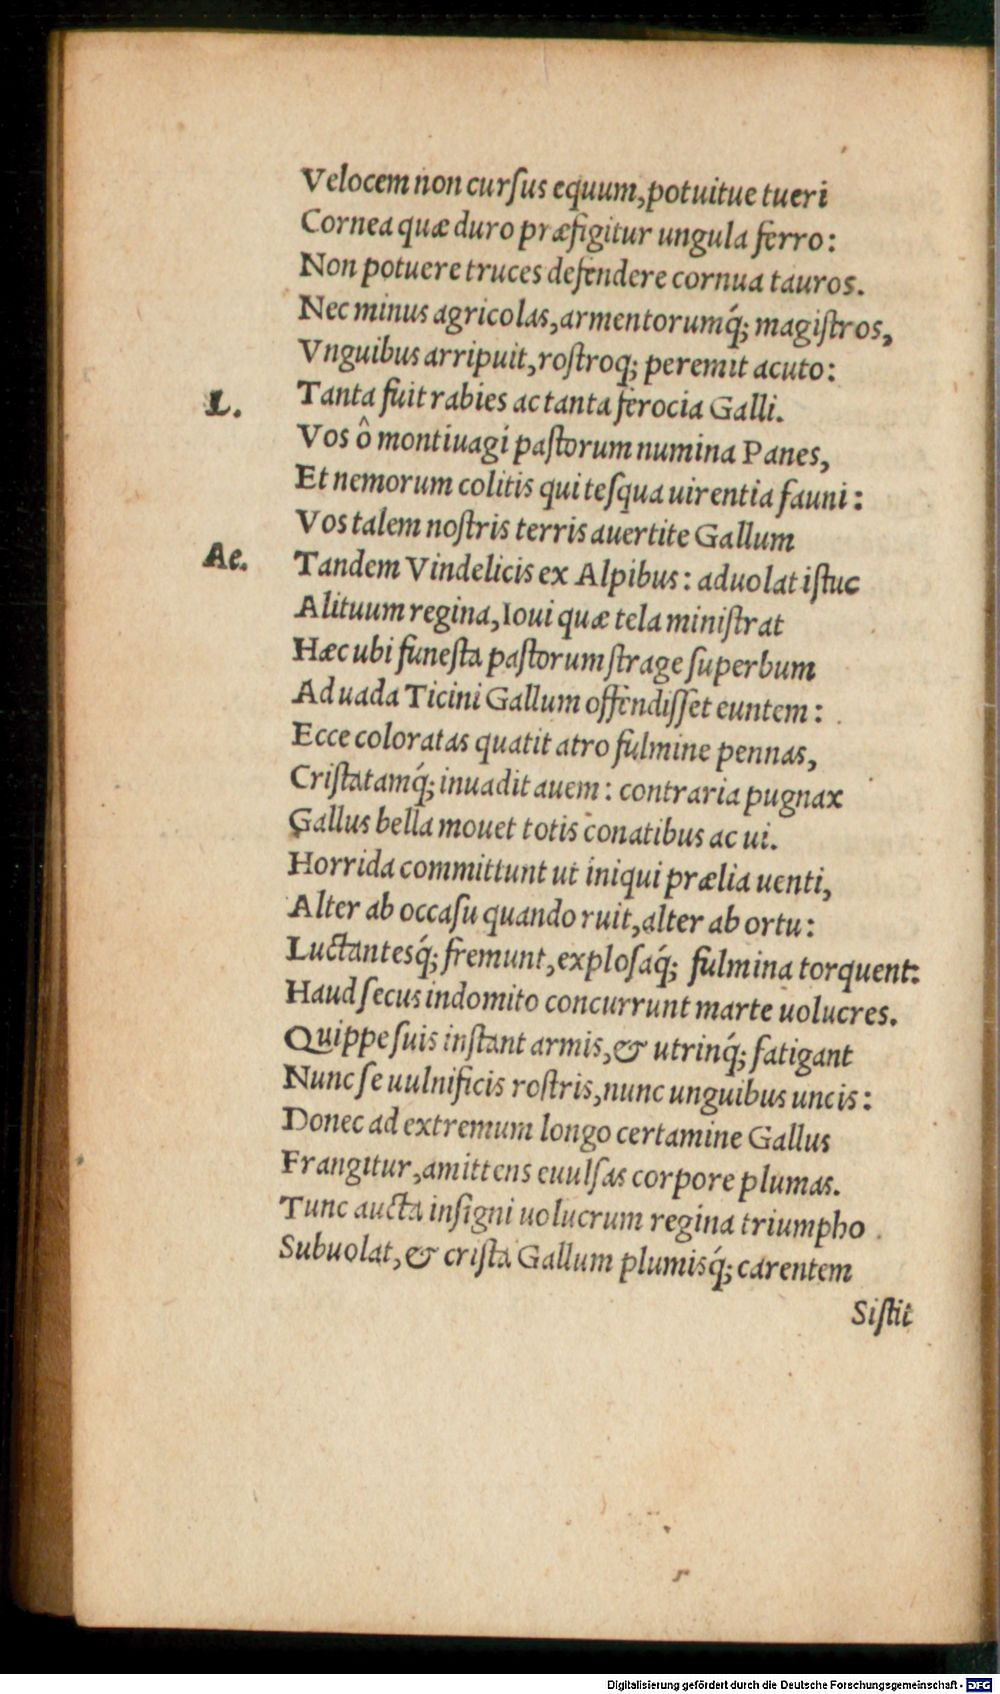 Velocem non curſus equum, potuitue tueri
Cornea quæ duro præfigitur ungula ferro:
Non potuere truces defendere cornua tauros.
Nec minus agricolas, armentorumq́; magiſtros,
Vnguibus arripuit, roſtroq; peremit acuto:
Tanta fuit rabies ac tanta ferocia Galli.
L. Vos ô montiuagi paſtorum numina Panes,
Et nemorum colitis qui teſqua uirentia fauni:
Vos talem noſtris terris auertite Gallum
Ae. Tandem Vindelicis ex Alpibus: aduolat iſtuc
Alituum regina, Ioui quæ tela miniſtrat
Hæc ubi funeſta paſtorum ſtrage ſuperbum
Ad uada Ticini Gallum offendiſſet euntem:
Ecce coloratas quatit atro fulmine pennas,
Criſtatamq́; inuadit auem: contraria pugnax
Gallus bella mouet totis conatibus ac ui.
Horrida committunt ut iniqui prælia uenti,
Alter ab occaſu quando ruit, alter ab ortu:
Luctantesq́; fremunt, exploſaq́; fulmina torquent:
Haud ſecus indomito concurrunt marte uolucres.
Quippe ſuis inſtant armis, & utrinq́; fatigant
Nunc ſe uulnificis roſtris, nunc unguibus uncis:
Donec ad extremum longo certamine Gallus
Frangitur, amittens euulſas corpore plumas.
Tunc aucta inſigni uolucrum regina triumpho
Subuolat, & criſta Gallum plumisq́; carentem
Siſtit
Digitalisierung gefördert durch die Deutsche Forschungsgemeinschaft - DFG